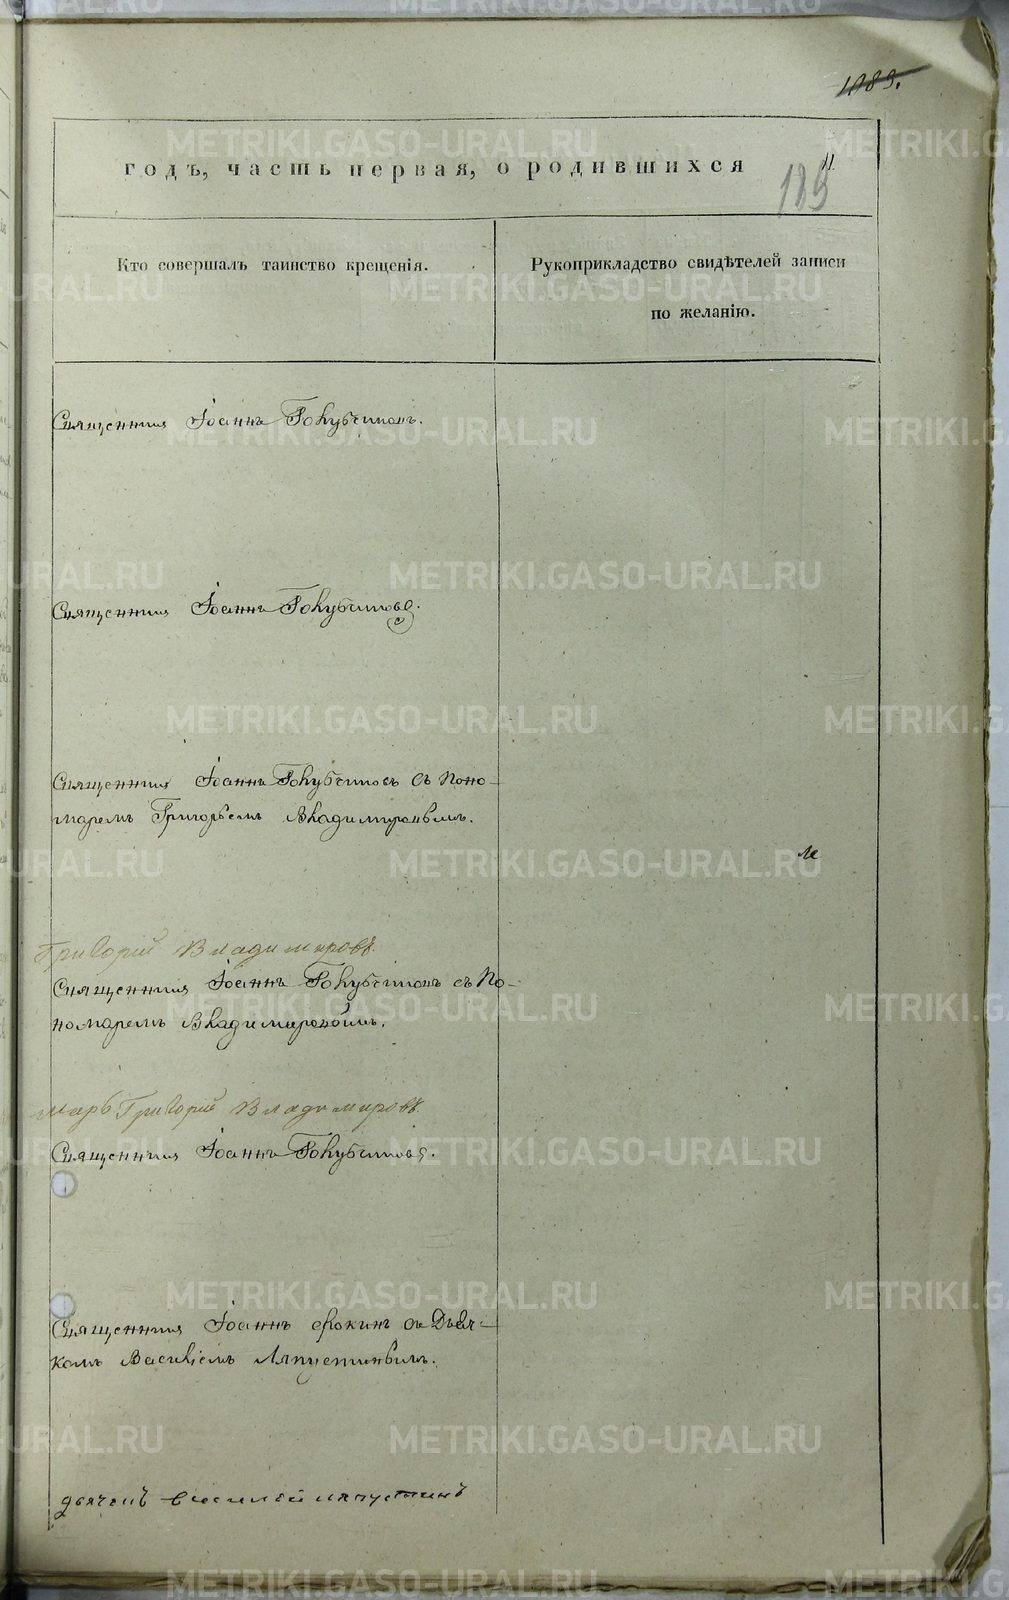 1183.
годъ, часть первая, о родившихся
189
Кто совершалъ таинство крещенія.
Рукоприкладство свидѣтелей записи
по желанію.
Священникъ Іоаннъ
Священникъ Іоаннъ
Священникъ Іоаннъ съ Поно-
маремъ Григорьемъ Владимировымъ.
Григорій Владимировъ
Священникъ Іоаннъ съ По-
номаремъ Владимировымъ.
марь Григорій Владимировъ
Священникъ Іоаннъ
Священникъ Іоаннъ съ Дьяч-
комъ Василіемъ Ляпустинымъ.
дьячекъ Василей Ляпустинъ
METRIKI.GASO-URAL.RU